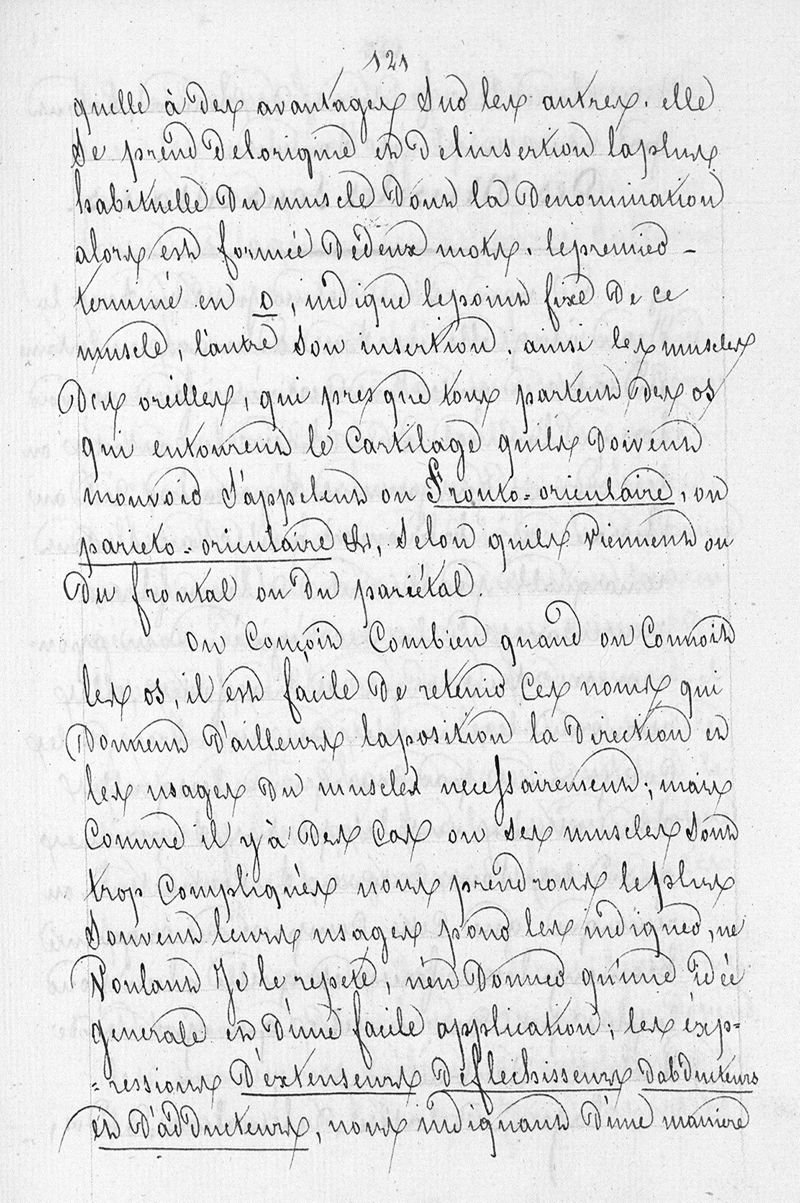 121
quelle à des avantages sur les autres. elle
se prend delorigine et delinsertion laplus
habituelle du muscle dont la denomination
alors est formée dedeux mots. lepremier -
terminé en o, indique lepoint fixe de ce
muscle, l'autre son insertion. ainsi les muscles
des oreilles, qui presque tous partent des os
qui entourent le cartilage quils doivent
mouvoir s'appelent ou fronto-oriculaire, ou
parieto-oriculaire &, selon quils viennent ou
du frontal ou du pariétal.
On conçoit combien quand on connoit
les os, il est facile de retenir ces noms qui
donnent d'ailleurs laposition la direction et
les usages du muscles necessairement; mais
comme il y à des cas ou ses muscles sont
trop compliqués nous prendrons leplus
souvent leurs usages pour les indiquer, ne
voulant Je le repete, n'en donner qu'une idée
generale et d'une facile application; les éxp-
-ressions D'extenseurs De flechisseurs d'abducteurs
et D'adducteurs, nous indiquant d'une maniere